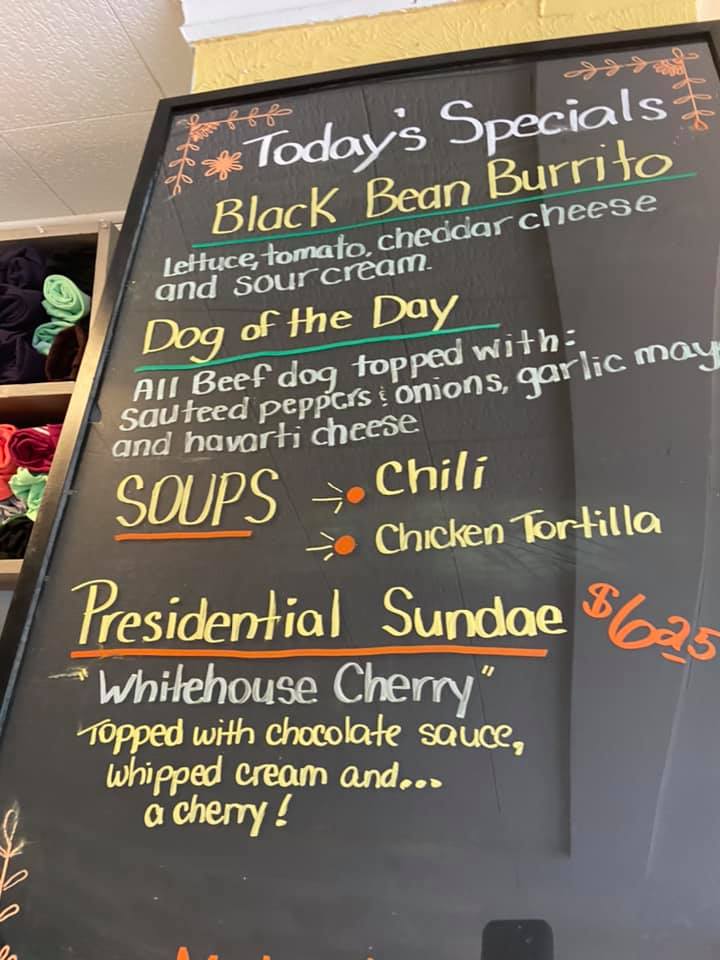 Today's Specials
Black Bean Burrito
Lettuce, tomato, cheddar cheese
and sour cream.
Dog of the Day
All Beef dog topped with:
sauteed peppers & onions, garlic may
and havarti cheese
SOUPS
Chili
Chicken Tortilla
Presidential Sundae $6.25
"Whitehouse Cherry"
Topped with chocolate sauce,
whipped cream and...
a cherry!